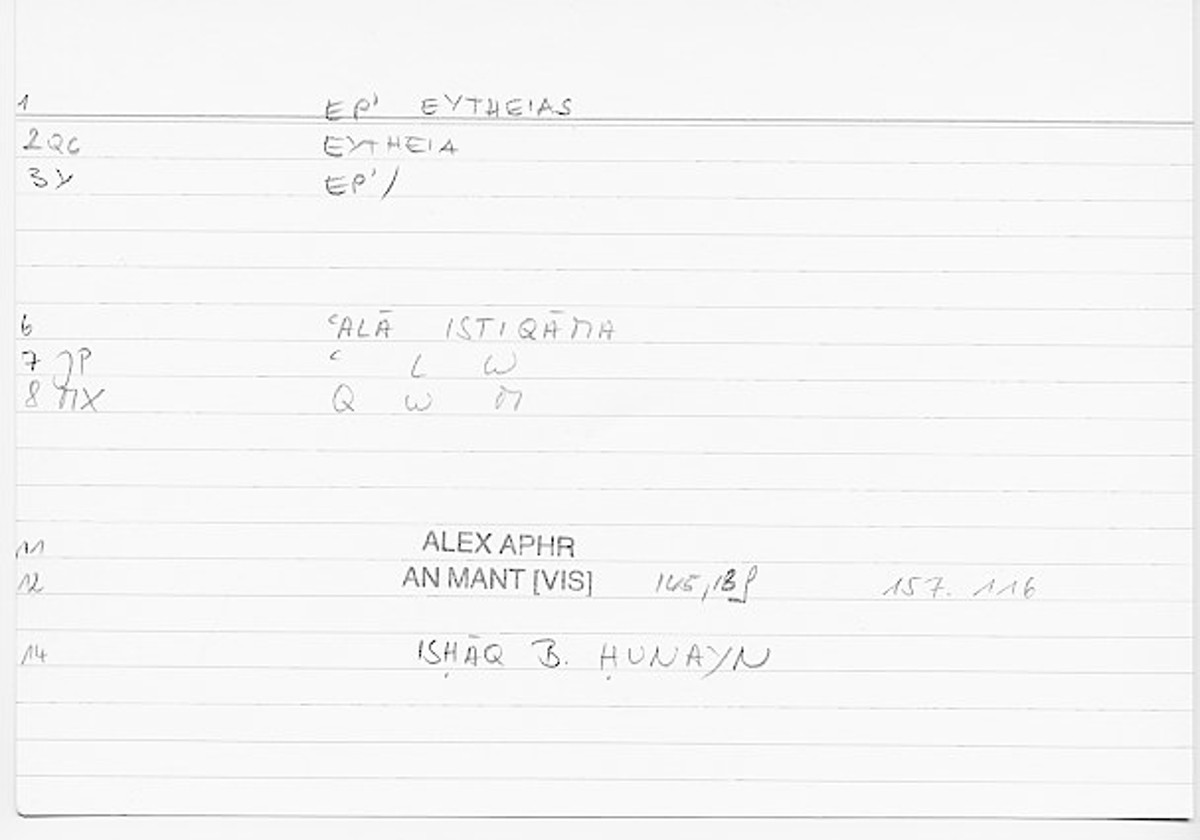 1 EP' EYTHEIAS
2QC EYTHEIA
3Y EP'/
6 ʿALĀ ISTIQĀMA
7 JP ʿ L W
8 MX Q W M
11 ALEX APHR
12 AN MANT [VIS] 145, 157. 116
14 ISḤĀQ B. ḤUNAYN